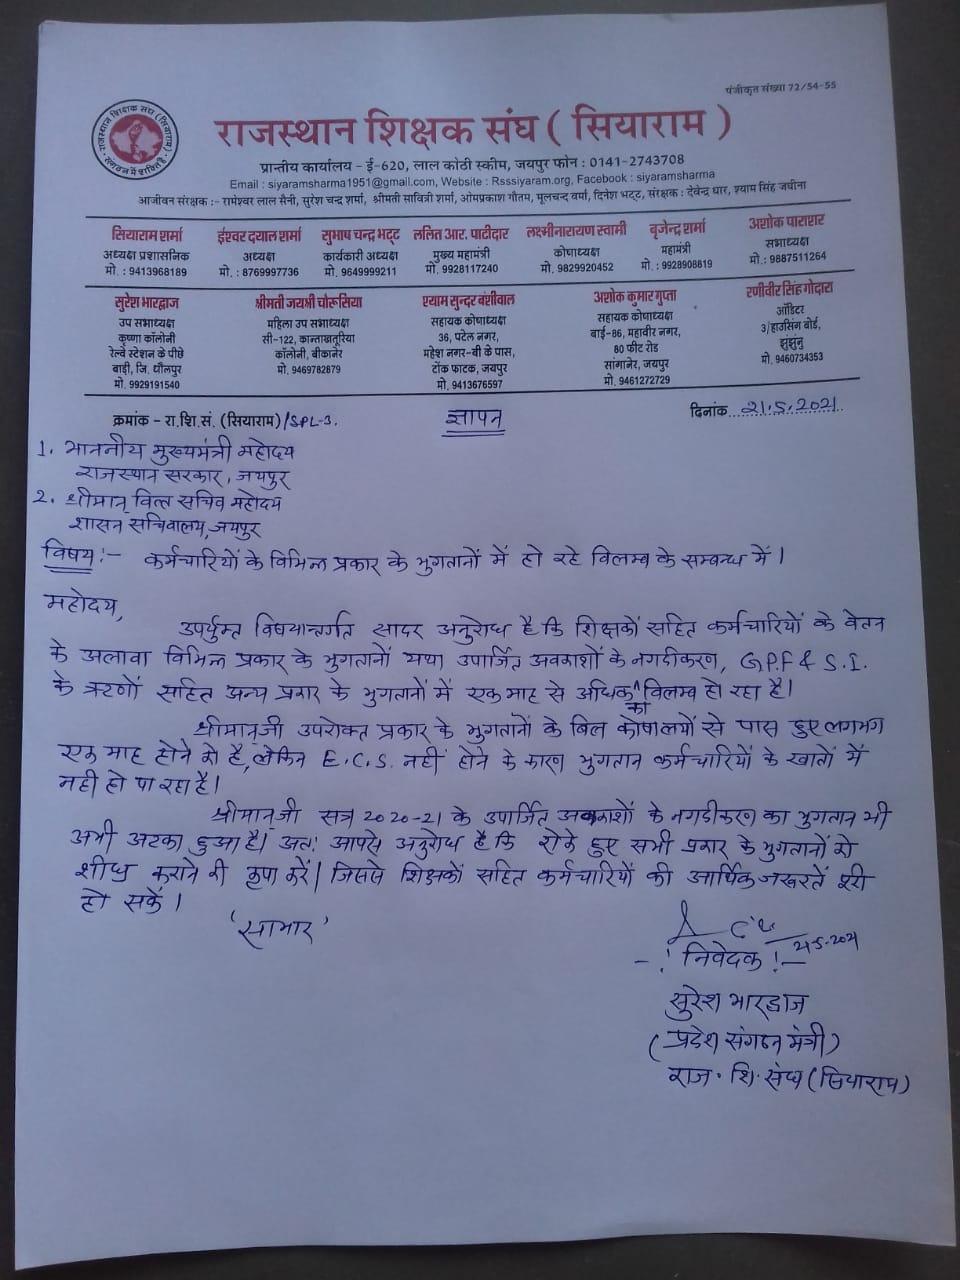 पंजीकृत संख्या 72/54-55
राजस्थान शिक्षक संघ (सियाराम)
राजस्थान शिक्षक संघ ( सियाराम )
प्रान्तीय कार्यालय - ई-620, लाल कोठी स्कीम, जयपुर फोन : 0141-2743708
Email : siyaramsharma1951@gmail.com, Website : Rsssiyaram.org, Facebook : siyaramsharma
आजीवन संरक्षक :- रामेश्वर लाल सैनी, सुरेश चन्द्र शर्मा, श्रीमती सावित्री शर्मा, ओमप्रकाश गौतम, मूलचन्द वर्मा, दिनेश भट्ट, संरक्षक : देवेन्द्र धार, श्याम सिंह जघीना
सियाराम शर्मा
अध्यक्ष प्रशासनिक
मो. : 9413968189
ईश्वर दयाल शर्मा
अध्यक्ष
मो. : 8769997736
सुभाष चन्द्र भट्ट
कार्यकारी अध्यक्ष
मो. 9649999211
ललित आर. पाटीदार
मुख्य महामंत्री
मो. 9928117240
लक्ष्मीनारायण स्वामी
कोषाध्यक्ष
मो. 9829920452
बृजेन्द्र शर्मा
महामंत्री
मो. : 9928908819
अशोक पाराशर
सभाध्यक्ष
मो. : 9887511264
सुरेश भारद्वाज
उप सभाध्यक्ष
कृष्णा कॉलोनी
रेल्वे स्टेशन के पीछे
बाड़ी, जि. धौलपुर
मो. 9929191540
श्रीमती जयश्री चौरूसिया
महिला उप सभाध्यक्ष
सी-122, कान्ताखतूरिया
कॉलोनी, बीकानेर
मो. 9469782879
श्याम सुन्दर बंशीवाल
सहायक कोषाध्यक्ष
36, पटेल नगर,
महेश नगर-बी के पास,
टोंक फाटक, जयपुर
मो. 9413676597
अशोक कुमार गुप्ता
सहायक कोषाध्यक्ष
बाई-86, महावीर नगर,
80 फीट रोड
सांगानेर, जयपुर
मो. 9461272729
रणीवीर सिंह गोदारा
ऑडिटर
3/हाउसिंग बोर्ड,
झुंझुंनु
मो. 9460734353
क्रमांक - रा.शि.सं. (सियाराम)/SPL-3.
ज्ञापन
दिनांक 21.5.2021
1. माननीय मुख्यमंत्री महोदय
राजस्थान सरकार, जयपुर
2. श्रीमान् वित्त सचिव महोदय
शासन सचिवालय, जयपुर
विषय:- कर्मचारियों के विभिन्न प्रकार के भुगतानों में हो रहे विलम्ब के सम्बन्ध में।
महोदय,
उपर्युक्त विषयान्तर्गत सादर अनुरोध है कि शिक्षकों सहित कर्मचारियों के वेतन
के अलावा विभिन्न प्रकार के भुगतानों यथा उपार्जित अवकाशों के नगदीकरण, G.P.F & S.I.
के ऋणों सहित अन्य प्रकार के भुगतानों में एक माह से अधिक का विलम्ब हो रहा है।
श्रीमान्जी उपरोक्त प्रकार के भुगतानों के बिल कोषालयों से पास हुए लगभग
एक माह होने को है, लेकिन E.C.S. नहीं होने के कारण भुगतान कर्मचारियों के खातों में
नहीं हो पा रहा है।
श्रीमान्जी सत्र 2020-21 के उपार्जित अवकाशों के नगदीकरण का भुगतान भी
अभी अटका हुआ है। अतः आपसे अनुरोध है कि रोके हुए सभी प्रकार के भुगतानों को
शीघ्र कराने की कृपा करें। जिससे शिक्षकों सहित कर्मचारियों की आर्थिक जरूरतें पूरी
हो सकें।
'साभार'
21-5-2021
-! निवेदक !-
सुरेश भारद्वाज
(प्रदेश संगठन मंत्री)
राज. शि. संघ (सियाराम)